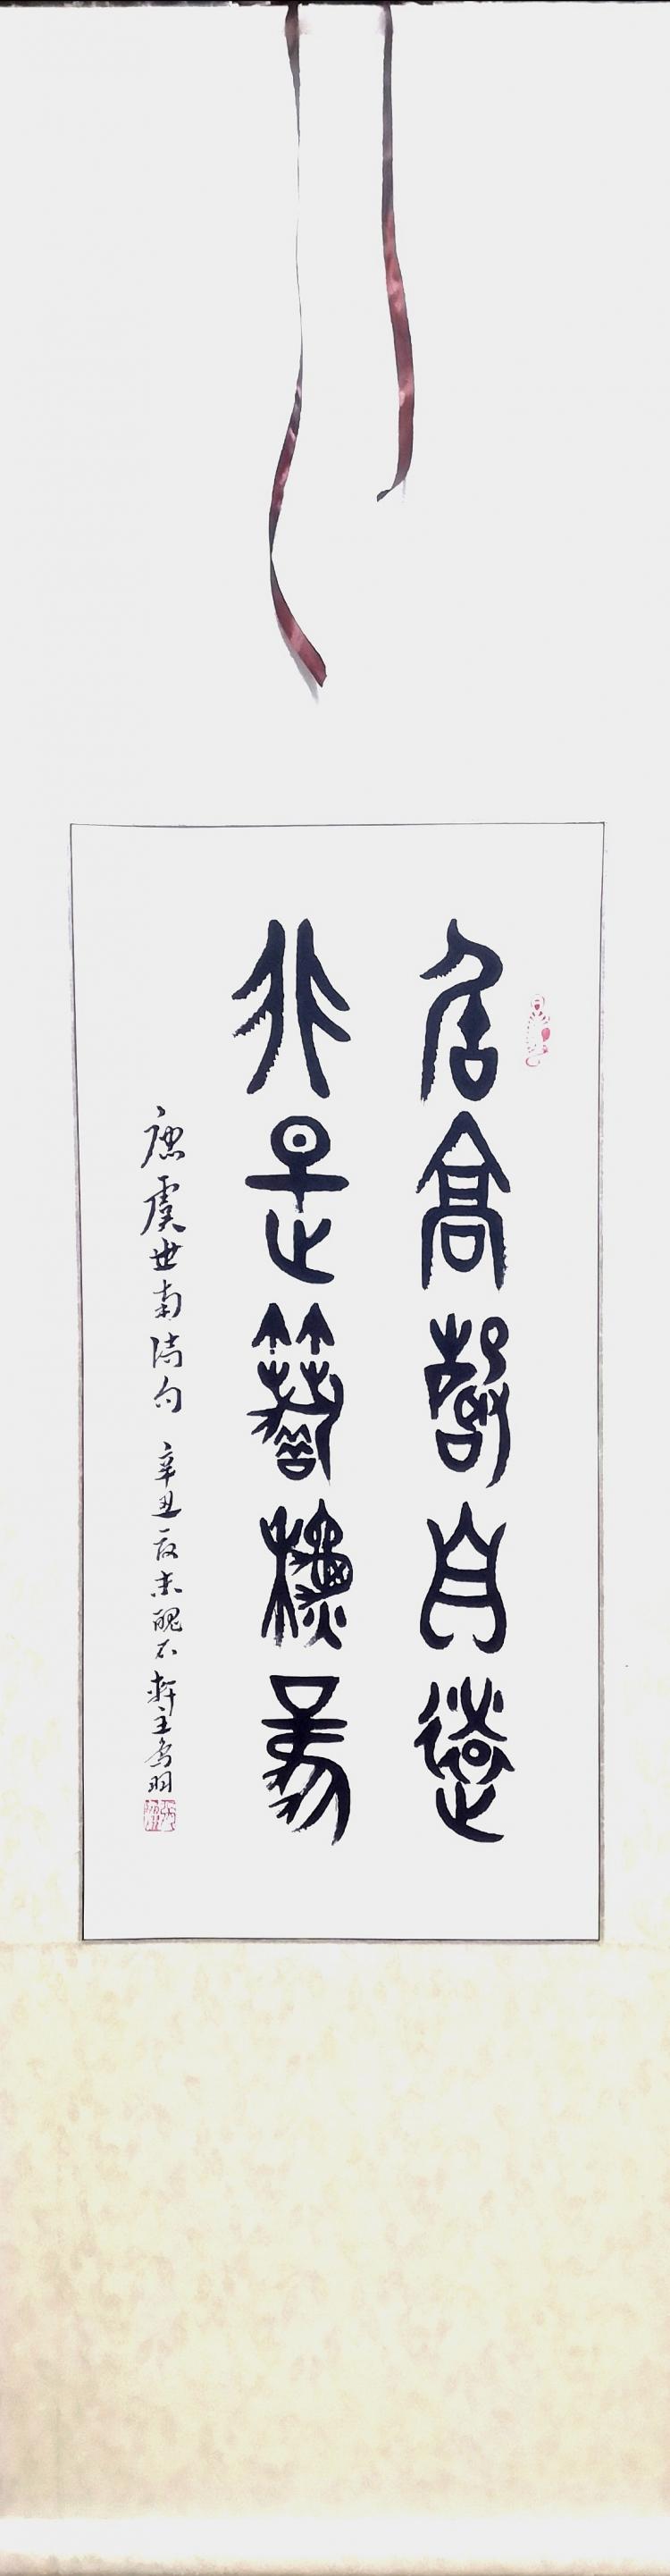 居高聲自遠
非是藉秋風
唐虞世南詩句 辛丑夏末醜石軒主